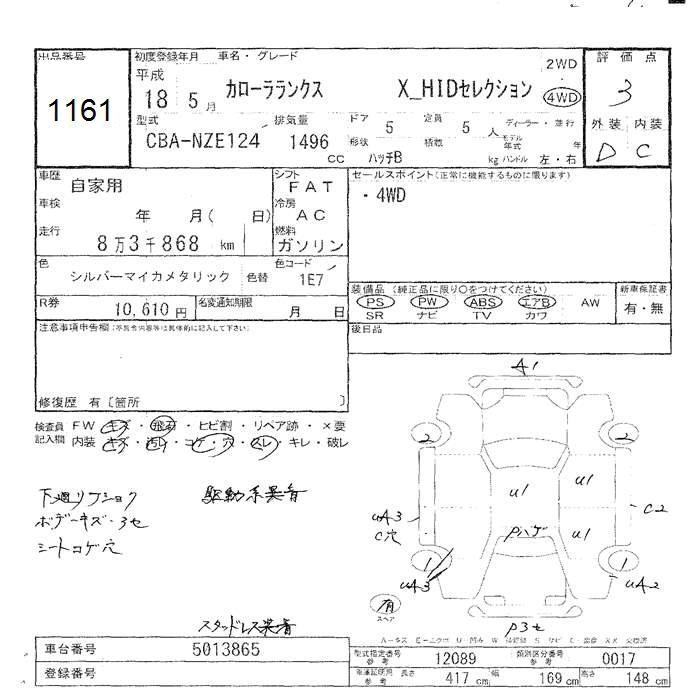 出品番号
1161
初度登録年月 車名・グレード
平成
18 5月 カローラランクス X_HIDセレクション
2WD
4WD
評価点
3
外装 内装
D C
型式 排気量 ドア 定員 ディーラー・並行
CBA-NZE124 1496 cc 5 5人
形状 積載 モデル年式 年
ハッチB kg ハンドル 左・右
車歴
自家用
車検
年 月( 日)
走行
8万3千868 km
シフト
FAT
冷房
AC
燃料
ガソリン
セールスポイント(正常に機能するものに限ります)
・4WD
色
シルバーマイカメタリック 色替
色コード
1E7
装備品 (純正品に限り○をつけてください)
PS PW ABS エアB AW
SR ナビ TV カワ
新車保証書
有・無
R券
10,610円
名変通知期限
月 日
後日品
注意事項申告欄(不具合内容等は具体的に記入して下さい)
修復歴 有〔箇所 〕
検査員記入欄
FW キズ・飛石・ヒビ割・リペア跡・×要
内装 キズ・汚レ・コゲ・穴・スレ・キレ・破レ
下廻りフショク 駆動系異音
ボデーキズ・3セ
シートコゲ穴
スタッドレス装着
A1
2 2
U1 U1
UA3 C2
C穴 Pハゲ U1
1 1
UA3 UA2
有
スペア
P3セ
車台番号 5013865
登録番号
型式指定番号 参考 12089 類別区分番号 参考 0017
車庫証明用 参考 長さ 417 cm 幅 169 cm 高さ 148 cm